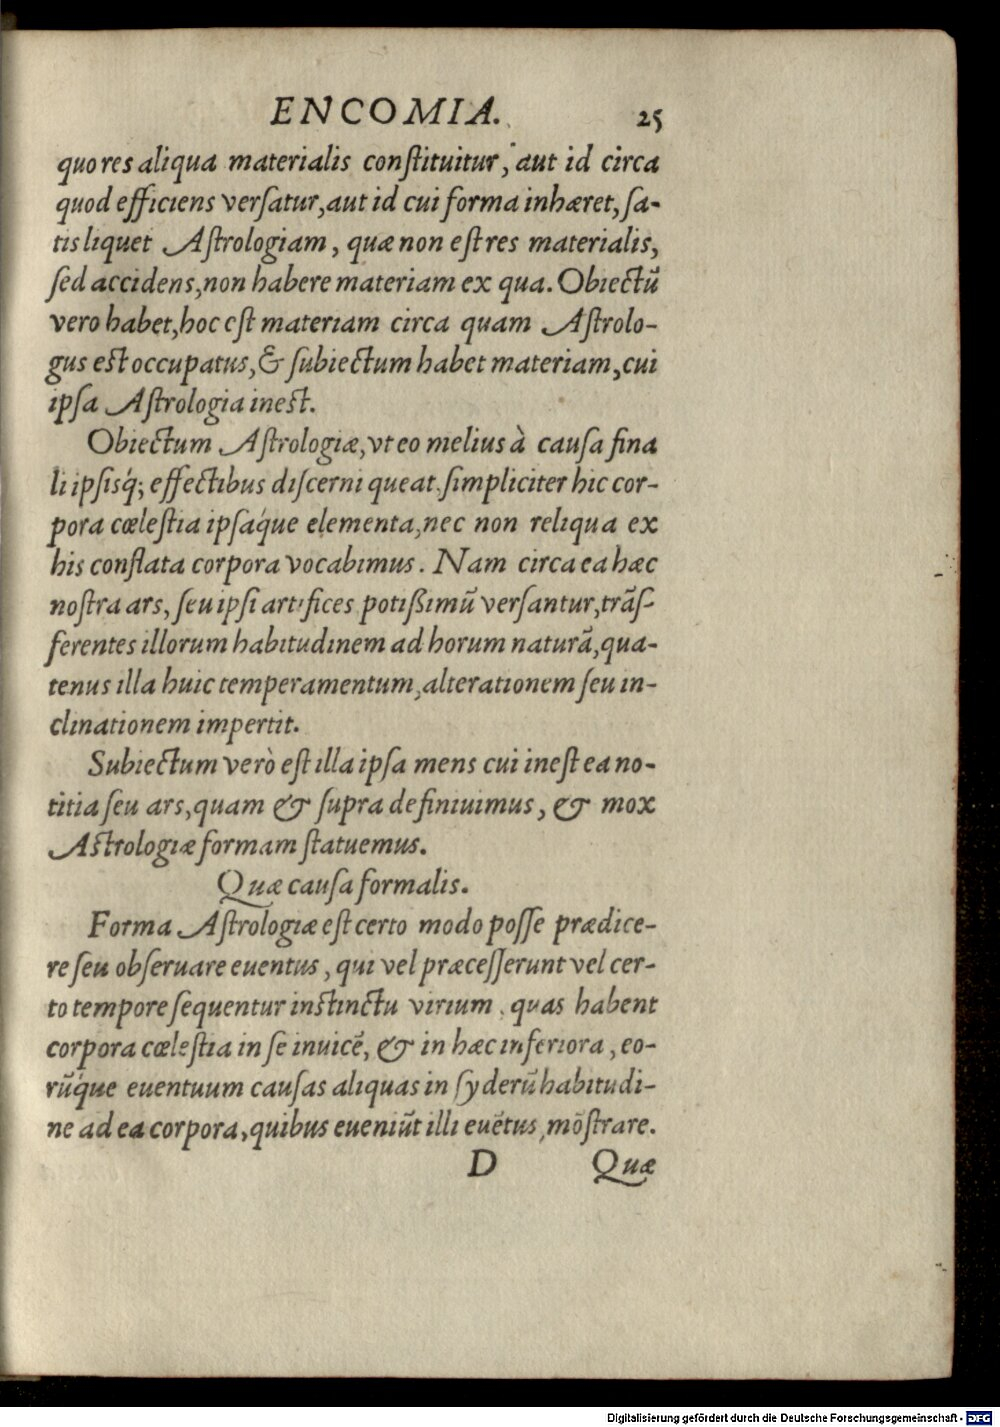 ENCOMIA. 25
quo res aliqua materialis conſtituitur, aut id circa
quod efficiens verſatur, aut id cui forma inhæret, ſa-
tis liquet Aſtrologiam, quæ non eſt res materialis,
ſed accidens, non habere materiam ex qua. Obiectũ
vero habet, hoc eſt materiam circa quam Aſtrolo-
gus eſt occupatus, & ſubiectum habet materiam, cui
ipſa Aſtrologia ineſt.
Obiectum Aſtrologiæ, vt eo melius à cauſa fina
li ipſisq́; effectibus diſcerni queat, ſimpliciter hic cor-
pora cœleſtia ipſaq́ue elementa, nec non reliqua ex
his conflata corpora vocabimus. Nam circa ea hæc
noſtra ars, ſeu ipſi artifices potißimũ verſantur, trãſ-
ferentes illorum habitudinem ad horum naturã, qua-
tenus illa huic temperamentum, alterationem ſeu in-
clinationem impertit.
Subiectum verò eſt illa ipſa mens cui ineſt ea no-
titia ſeu ars, quam & ſupra definiuimus, & mox
Aſtrologiæ formam ſtatuemus.
Quæ cauſa formalis.
Forma Aſtrologiæ eſt certo modo poſſe prædice-
re ſeu obſeruare euentus, qui vel præceſſerunt vel cer-
to tempore ſequentur inſtinctu virium, quas habent
corpora cœleſtia in ſe inuicẽ, & in hæc inferiora, eo-
rũq́ue euentuum cauſas aliquas in ſyderũ habitudi-
ne ad ea corpora, quibus eueniũt illi euẽtus, mõſtrare.
D Quæ
Digitalisierung gefördert durch die Deutsche Forschungsgemeinschaft - DFG